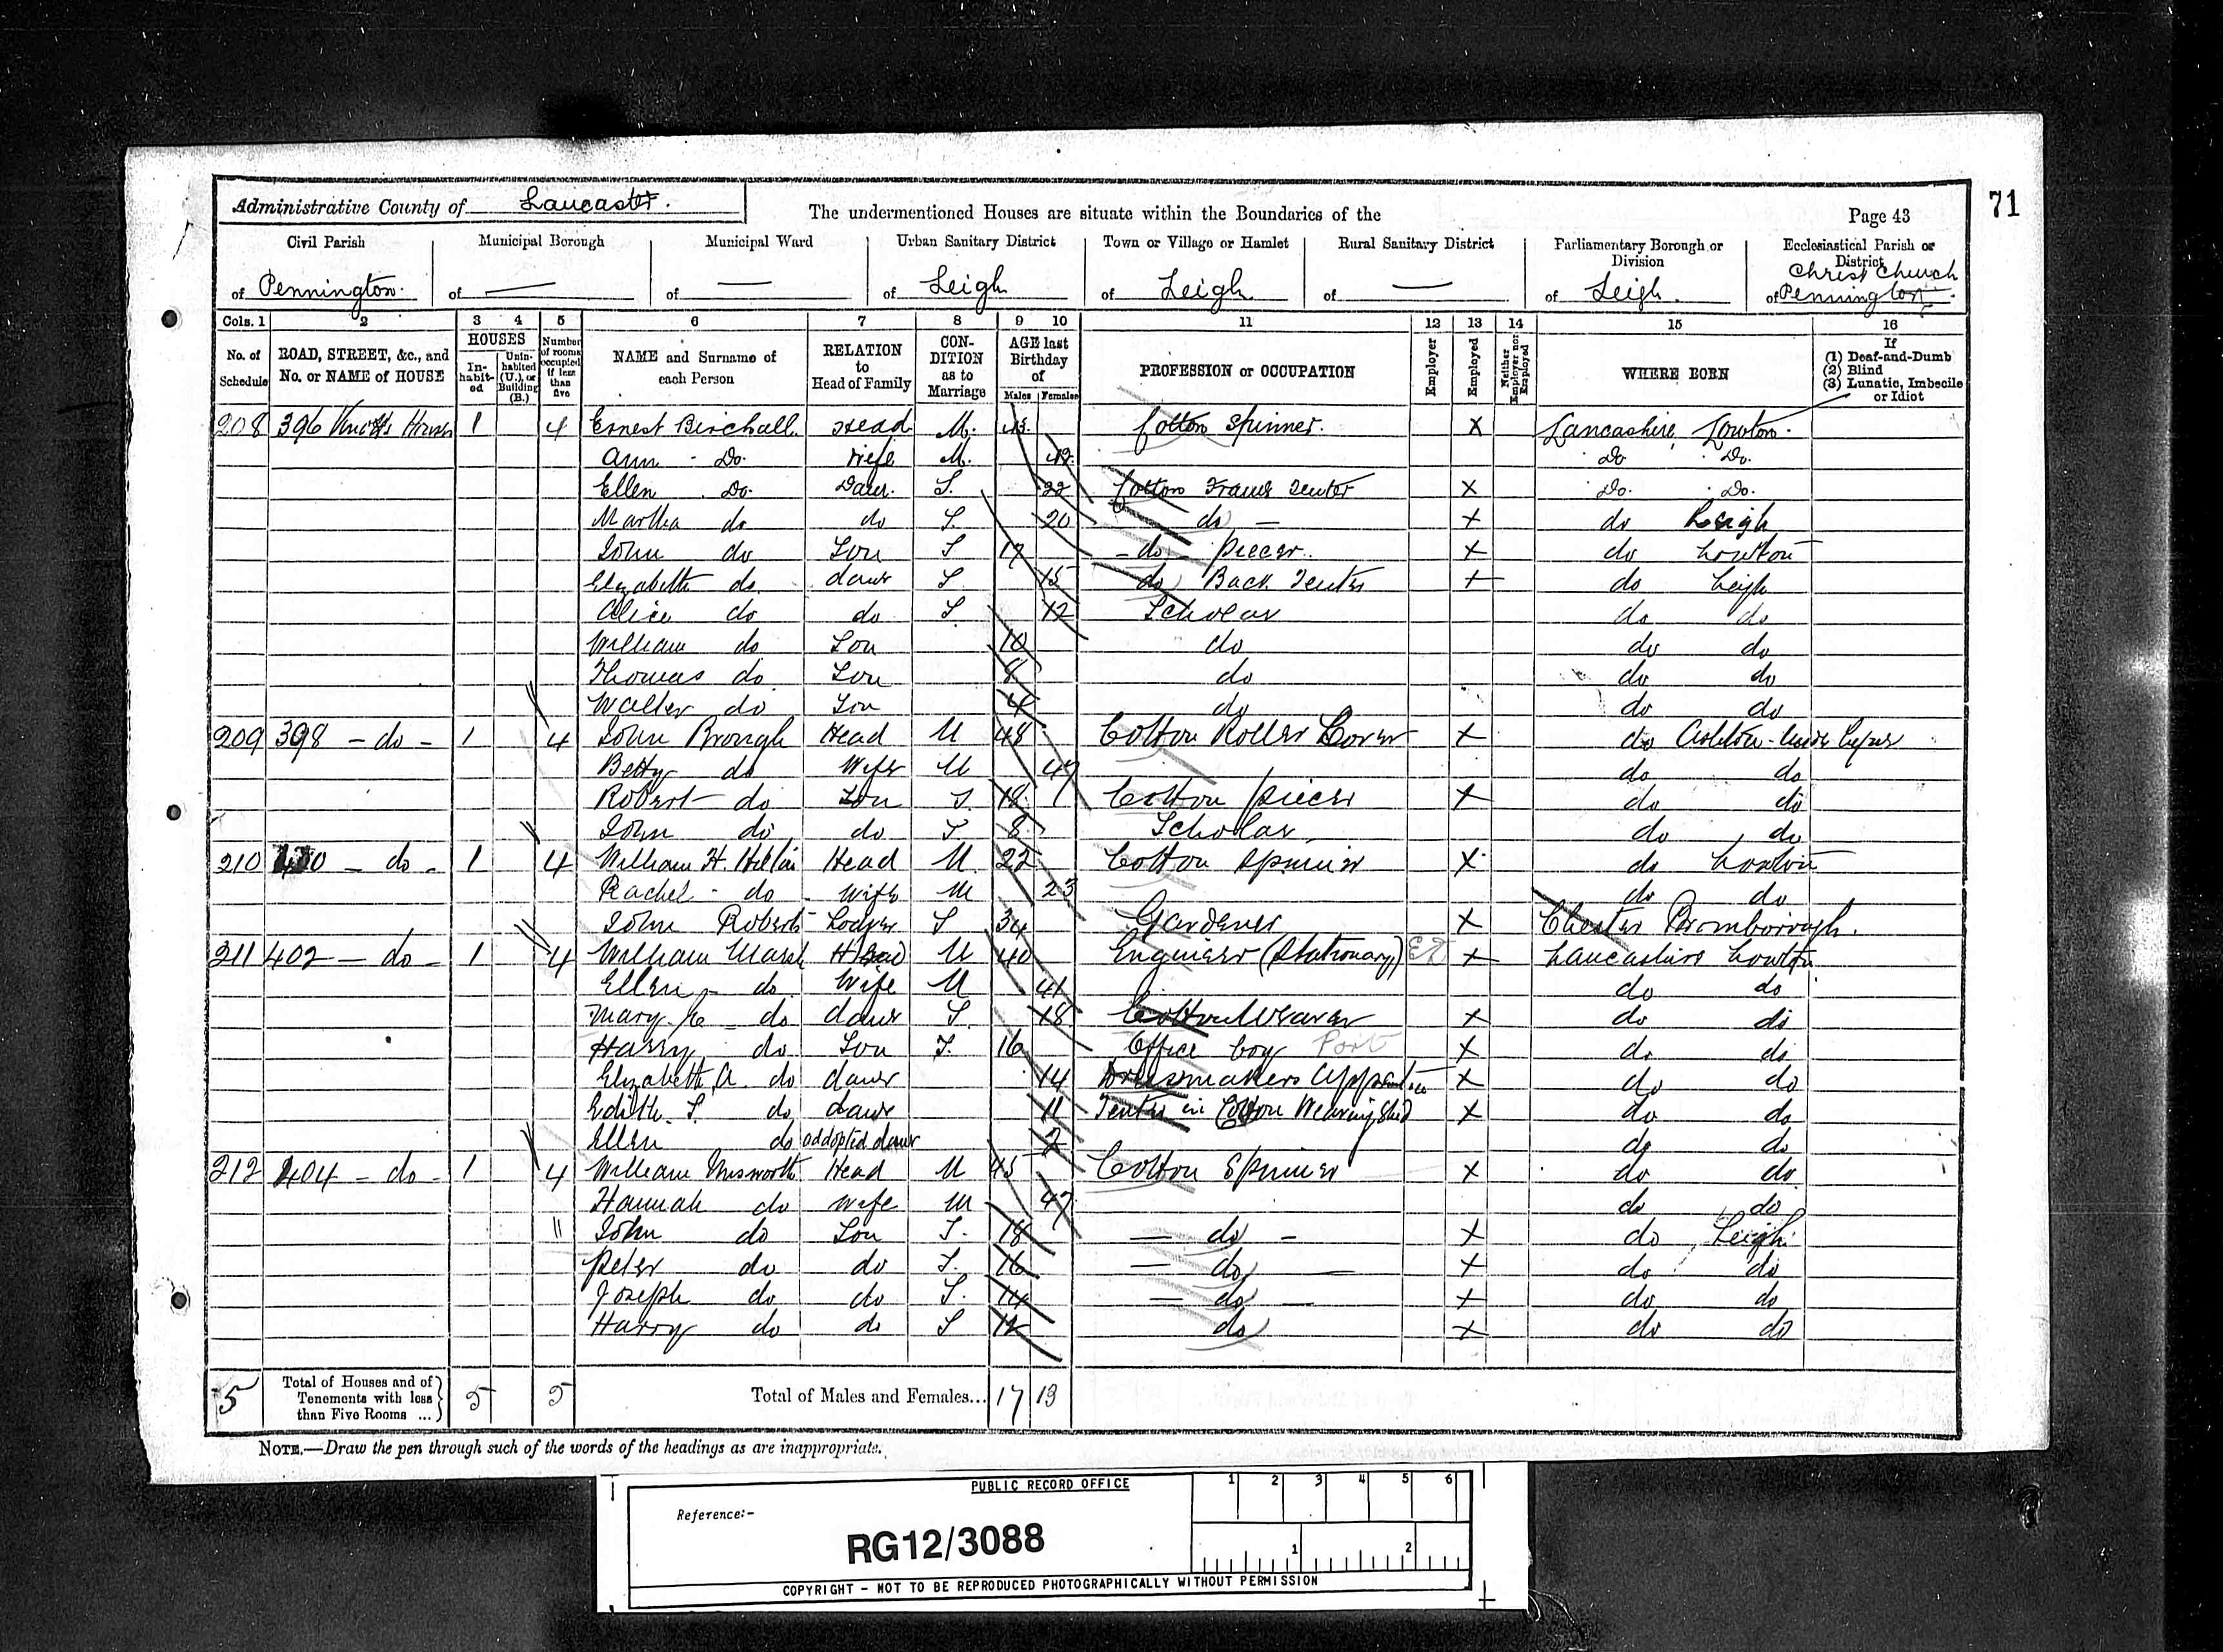 71
Administrative County of Lancaster. The undermentioned Houses are situate within the Boundaries of the Page 43
Civil Parish Municipal Borough Municipal Ward Urban Sanitary District Town or Village or Hamlet Rural Sanitary District Parliamentary Borough or Division Ecclesiastical Parish or District
of Pennington. of — of — of Leigh of Leigh of — of Leigh. of Christ Church Pennington.
Cols. 1 2 3 4 5 6 7 8 9 10 11 12 13 14 15 16
No. of Schedule ROAD, STREET, &c., and No. or NAME of HOUSE HOUSES Inhabited Uninhabited (U.), or Building (B.) Number of rooms occupied if less than five NAME and Surname of each Person RELATION to Head of Family CONDITION as to Marriage AGE last Birthday of Males Females PROFESSION or OCCUPATION Employer Employed Neither Employer nor Employed WHERE BORN If (1) Deaf-and-Dumb (2) Blind (3) Lunatic, Imbecile or Idiot
208 396 1 4 Ernest Birchall Head M. Cotton Spinner. X Lancashire Lowton.
Ann Do. Wife M. Do Do.
Ellen Do. Daur. S. 22 Cotton Frame Tenter X Do. Do.
Martha do do S. 20 do — X do Leigh
John do Son S 17 - do - Piecer. X do Lowton
Elizabeth do daur S 15 do Back Tenter X do Leigh
Alice do do S. 12 Scholar do do
William do Son 10 do do do
Thomas do Son 8 do do do
Walter do Son 4 do do do
209 398 - do - 1 4 John Brough Head M 48 Cotton Roller Corer X do Ashton-
Betty do Wife M 47 do do
Robert do Son S. 18 Cotton piecer X do do
John do do S 8 Scholar do do
210 400 - do - 1 4 William H. Hilton Head M 22 Cotton Spinner X do Lowton
Rachel - do Wife M 23 do do
John Roberts Lodger S 34 Gardener X Chester Bromborough.
211 402 - do - 1 4 William Marsh Head M 40 Engineer (Stationary) X Lancashire Lowton
Ellen - do Wife M 41 do do
Mary do daur S 18 Cotton Weaver X do do
Harry do Son S. 16 Office boy Port X do do
Elizabeth A. do daur 14 Dressmakers Apprentice X do do
Edith S. do daur 11 Tenter in Cotton Weaving Shed X do do
Ellen do addopted daur 2 do do
212 404 - do - 1 4 William Unsworth Head M 45 Cotton Spinner X do do
Hannah do wife M 47 do do
John do Son S. 18 — do - X do Leigh
Peter do do S. 16 — do — X do do
Joseph do do S. 14 — do — X do do
Harry do do S 12 do X do do
5 Total of Houses and of Tenements with less than Five Rooms ... 5 5 Total of Males and Females... 17 13
NOTE.—Draw the pen through such of the words of the headings as are inappropriate.
PUBLIC RECORD OFFICE 1 2 3 4 5 6
Reference:-
RG12/3088
1 2
COPYRIGHT - NOT TO BE REPRODUCED PHOTOGRAPHICALLY WITHOUT PERMISSION